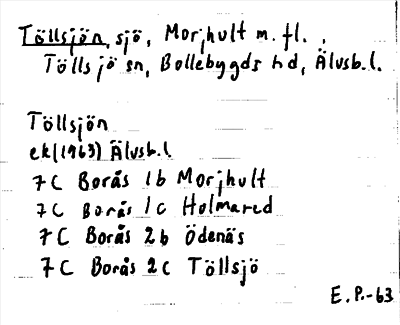 Töllsjön, sjö, Morjhult m. fl.,
Töllsjö sn, Bollebygds hd, Älvsb.l.
Töllsjön
ek(1963) Älvsb.l
7C Borås 1b Morjhult
7C Borås 1c Holmared
7C Borås 2b Ödenäs
7C Borås 2c Töllsjö
E.P.-63